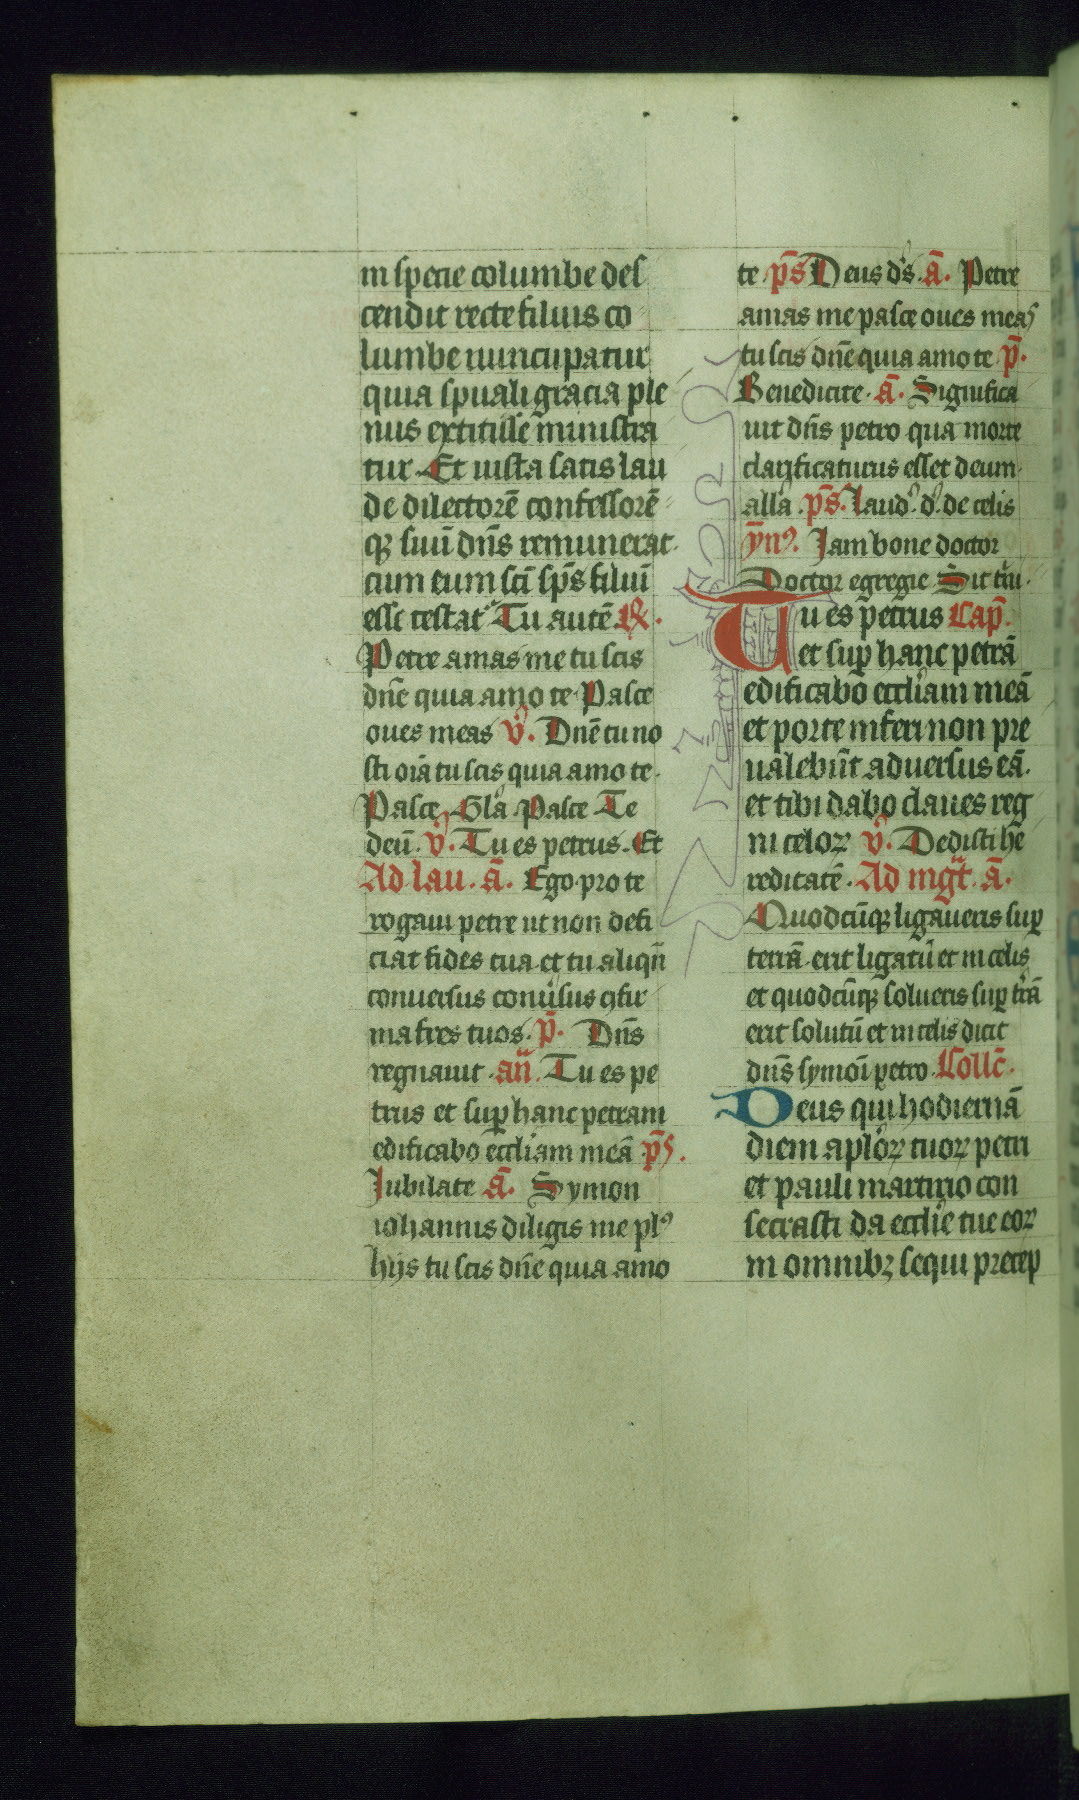 in specie columbe des
cendit recte filius co
lumbe nuncupatur
quia spuali gracia ple
nus extitisse ministra
tur. Et iusta satis lau
de dilectorē confessorē
qꝫ suū dn̄s remunerat
cum eum scī sp̄s filiū
esse testat᷑ Tu autē R̸.
Petre amas me tu scis
dn̄e quia amo te Pasce
oues meas v̊. Dn̄e tu no
sti oīa tu scis quia amo te.
Pasce Gl̄a Pasce Te
deū. v̊. Tu es petrus. Et
Ad lau. ā. Ego pro te
rogaui petre ut non defi
ciat fides tua et tu aliqn̄
conuersus conūsus ꝯfir
ma fr̄es tuos. p̄. Dn̄s
regnauit. an̄. Tu es pe
trus et suꝑ hanc petram
edificabo eccl̄iam meā p̄s.
Jubilate ā. Symon
iohannis diligis me plꝰ
hijs tu scis dn̄e quia amo
te p̄s Deus d's. ā. Petre
amas me pasce oues meas
tu scis dn̄e quia amo te p̄.
Benedicite. ā. Significa
uit dn̄s petro qua morte
clarificaturus esset deum
all̄a. p̄s. Laud. d. de celis
ȳnꝰ. Jam bone doctor
Doctor egregie Sit t̄ni.
Tu es petrus Cap̄.
et suꝑ hanc petrā
edificabo eccl̄iam meā
et porte inferi non pre
ualebūt aduersus eā.
et tibi dabo claues reg
ni celoꝝ v̊. Dedisti he
reditatē. Ad mḡt. ā.
Quodcūqꝫ ligaueris suꝑ
terrā erit ligatū et in celis
et quodcūqꝫ solueris suꝑ tr̄ā
erit solutū et in celis dicit
dn̄s symoī petro Coll̄c.
Deus qui hodiernā
diem apl̄oꝝ tuoꝝ petri
et pauli martirio con
secrasti da eccl̄ie tue eoꝝ
in omnibꝫ sequi precep